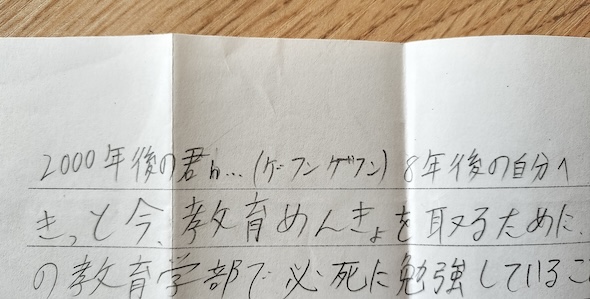 2000年後の君へ…(ゲフンゲフン) 8年後の自分へ
きっと今、教育めんきょを取るために、
の教育学部で必死に勉強しているこ